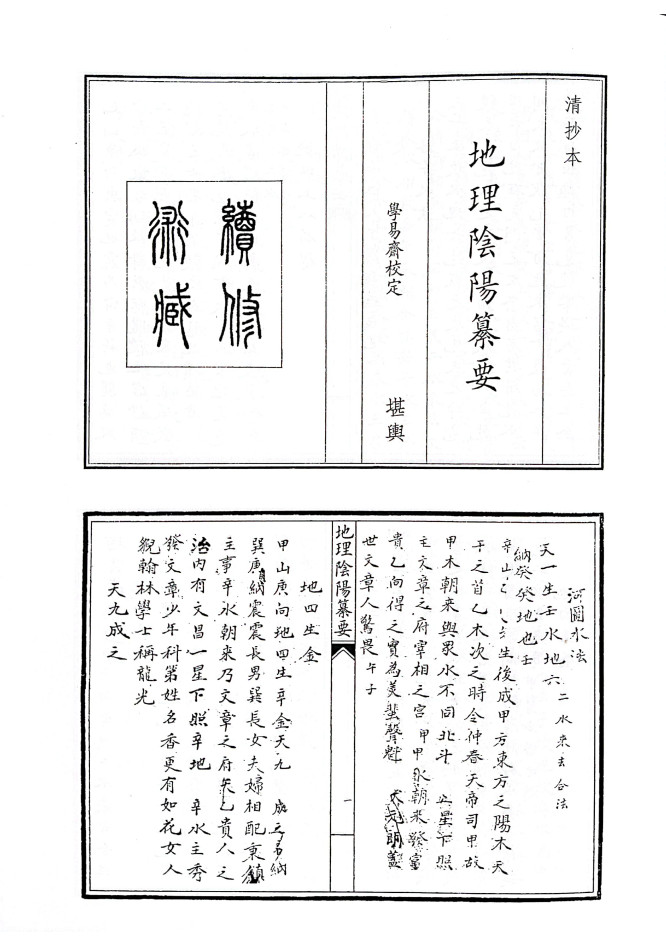 清抄本
地理陰陽纂要
學易齋校定 堪輿
續修
術藏
河圖水法
二水來去合法
天一生壬水地六
納癸癸地也壬
辛山乙 生後成甲方東方之陽木天
干之首乙木次之時令仲春天帝司甲故
甲木朝來與眾水不同北斗 星下照
主文章之府宰相之宮甲甲水朝來發富
貴乙向得之實為美蜚聲魁
世文章人驚畏午子
地理陰陽纂要
一
甲山庚向地四生辛金天九 成之 納
巽庚納震震長男巽長女夫婦相配東鎮
主事辛水朝來乃文章之府 乙貴人之
治內有文昌一星下照辛地 辛水主秀
發文章少年科第姓名香更有如花女人
貌翰林學士稱龍光
地四生金
天九成之